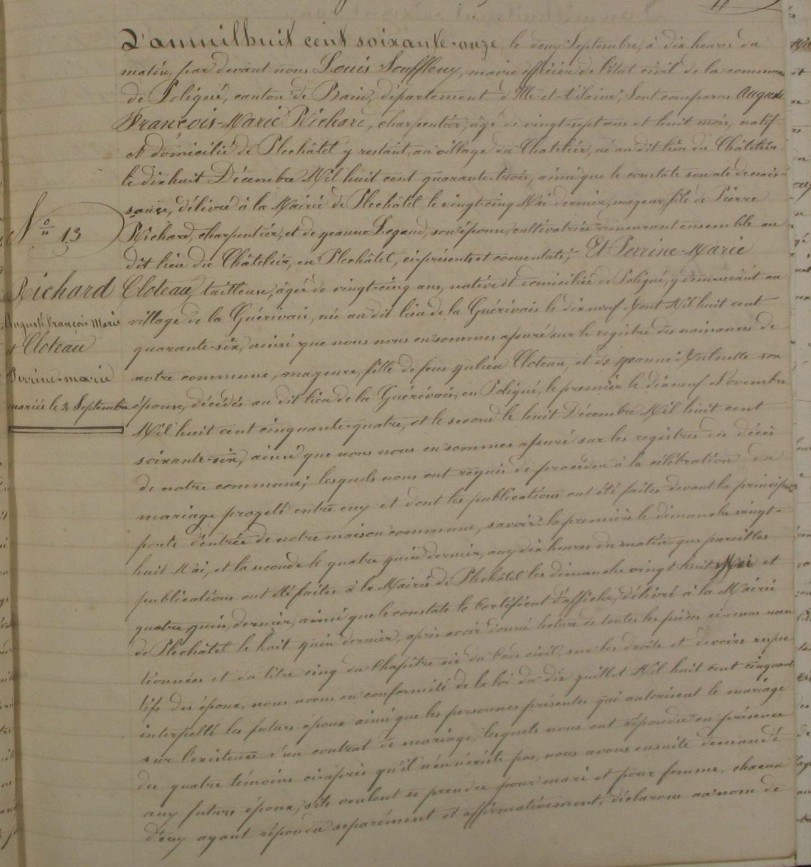 L'an mil huit cent soixante-onze, le deux Septembre, à dix heures du
matin, par devant nous Louis Souffleux, maire officier de l'état civil de la commune
de Poligné, canton de Bain, département d'Ille-et-Vilaine, sont comparus Auguste
François-Marie Richard, charpentier, âgé de vingt-sept ans et huit mois, natif
et domicilié de Plechâtel y restant, au village du Chatelier, né au dit lieu du Châtelier
le dix huit Décembre Mil huit cent quarante-trois, ainsi que le constate son acte de nais-
sance, délivré à la Mairie de Plechâtel le vingt cinq Mai dernier, majeur, fils de Pierre
Richard, charpentier, et de Jeanne Legaud, son épouse, cultivatrice demeurant ensemble au
dit lieu du Châtelier, en Plechâtel, ci présents et consentants; Et Perrine-Marie
Cloteau, tailleuse, âgée de vingt cinq ans, native et domiciliée de Poligné, y demeurant au
village de la Guérivais, née au dit lieu de la Guérivais le dix neuf Aout Mil huit cent
quarante-six, ainsi que nous nous en sommes assuré sur le registre des naissances de
notre commune, majeure, fille de feus Julien Cloteau, et de Jeanne son
épouse, décédés au dit lieu de la Guérivais, en Poligné, le premier le dix neuf Novembre
Mil huit cent cinquante-quatre, et le second le huit Décembre Mil huit cent
soixante-six, ainsi que nous nous en sommes assuré sur les registres de décès
de notre commune; lesquels nous ont requis de procéder à la célébration du
mariage projeté entre eux et dont les publications ont été faites devant la principale
porte d'entrée de notre maison commune, savoir: la première le dimanche vingt-
huit Mai, et la seconde le quatre juin dernier, aux dix heures du matin, que pareilles
publications ont été faites à la Mairie de Plechâtel les dimanche vingt huit Mai et
quatre juin dernier, ainsi que le constate le certificat d'affiche, délivré à la Mairie
de Plechâtel le huit juin dernier, après avoir donné lecture de toutes les pièces ci-dessus men-
tionnées et du titre cinq du chapitre six du code civil sur les droits et devoirs respec-
tifs des époux, nous avons en conformité de la loi du dix juillet Mil huit cent cinquante
interpellé les futurs époux ainsi que les personnes présentes qui autorisent le mariage
sur l'existence d'un contrat de mariage, lesquels nous ont répondu en présence
des quatre témoins ci-après qu'il n'en existe pas, nous avons ensuite demandé
aux futurs époux, s'ils veulent se prendre pour mari et pour femme, chacun
d'eux ayant répondu séparément et affirmativement, déclarons au nom de
N° 13
Richard
Auguste François Marie
et Cloteau
Perrine-marie
mariés le 2 Septembre